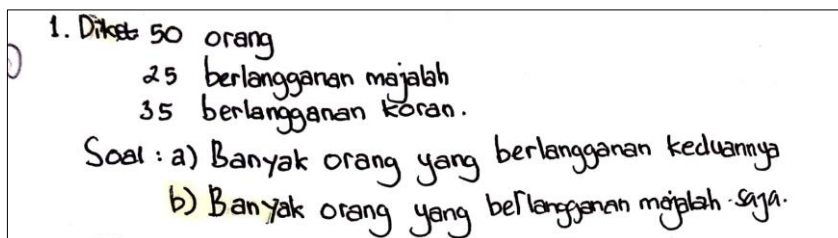 1. Diket 50 orang
25 berlangganan majalah
35 berlangganan koran.
Soal : a) Banyak orang yang berlangganan keduannya
b) Banyak orang yang berlangganan majalah saja.